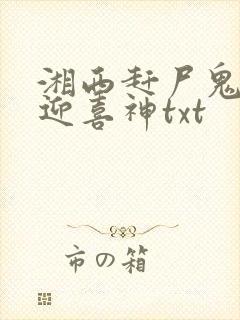 湘西赶尸鬼
迎喜神txt
市の箱